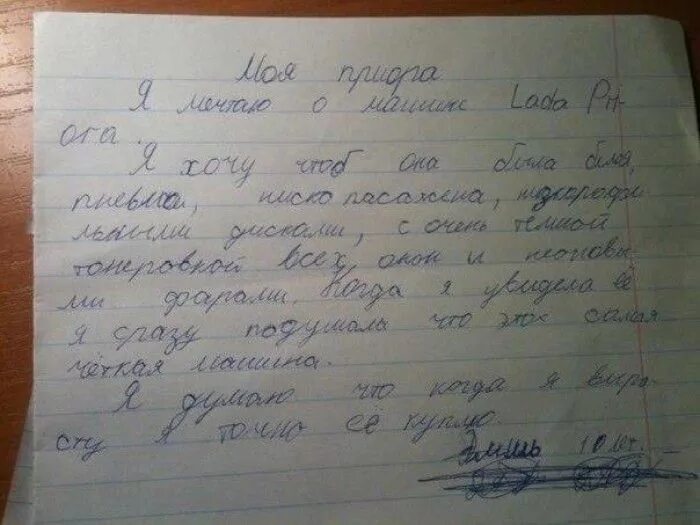 Моя приора
Я мечтаю о машине Lada Pri-
ora.
Я хочу чтоб она была белая,
пневма, ниско пасажена,
льными дисками, с очень тёмной
тонеровкой всех окон и неоновы-
ми фарами. Когда я увидела её
я сразу подумала что это самая
чёткая машина.
Я думаю что когда я выра-
сту я точно её куплю.
Эмиль 10 лет.